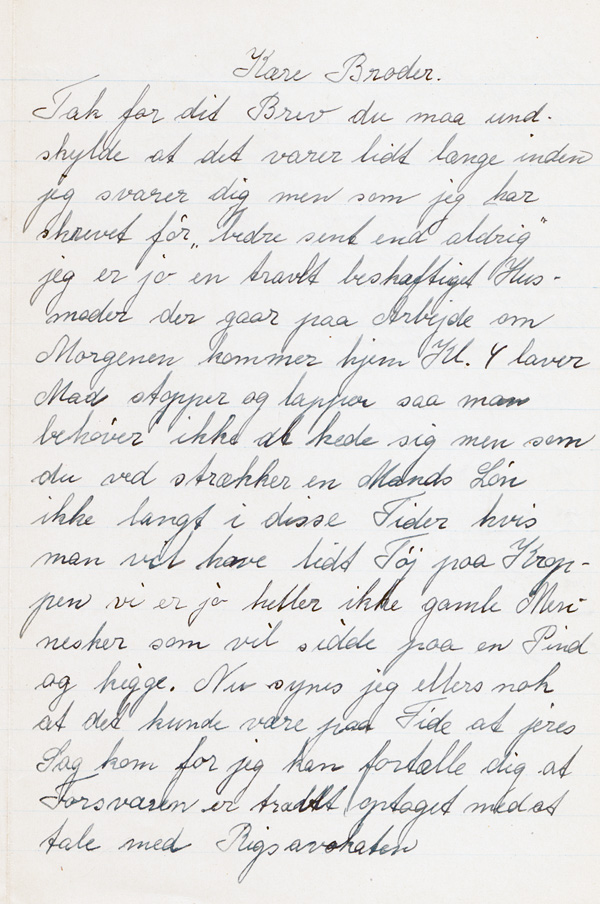 Kære Broder.
Tak for dit Brev du maa und-
skylde at det varer lidt længe inden
jeg svarer dig men som jeg har
skrevet før „bedre sent end aldrig"
jeg er jo en travlt beskæftiget Hus-
moder der gaar paa Arbejde om
Morgenen kommer hjem Kl. 4 laver
Mad stopper og lapper saa man
behøver ikke at kede sig men som
du ved strækker en Mands Løn
ikke langt i disse Tider hvis
man vil have lidt Tøj paa Krop-
pen vi er jo heller ikke gamle Men
nesker som vil sidde paa en Pind
og kigge. Nu synes jeg ellers nok
at det kunde være paa Tide at jeres
Sag kom for jeg kan fortælle dig at
Forsvaren er travlt optaget med at
tale med Rigsavokaten